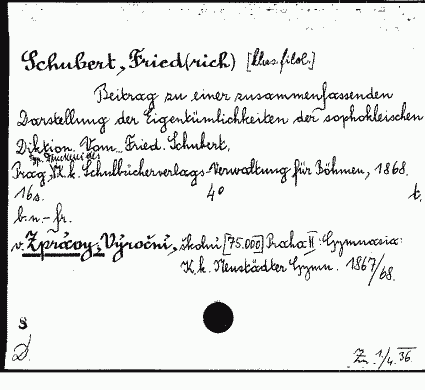 Schubert, Fried(rich) [klas. filol.]
Beitrag zu einer zusammenfassenden
Darstellung der Eigentümlichkeiten der sophokleischen
Diktion. Vom Fried. Schubert.
Prag, K. k. Schulbücherverlags-Verwaltung für Böhmen, 1868.
16 s. 4° t.
b. n. - fr.
v. Zprávy, Výroční, školní [75.000] Praha II: Gymnasia:
K. k. Neustädter Gymn. 1867/68.
8
D. Zn 1/4. 36